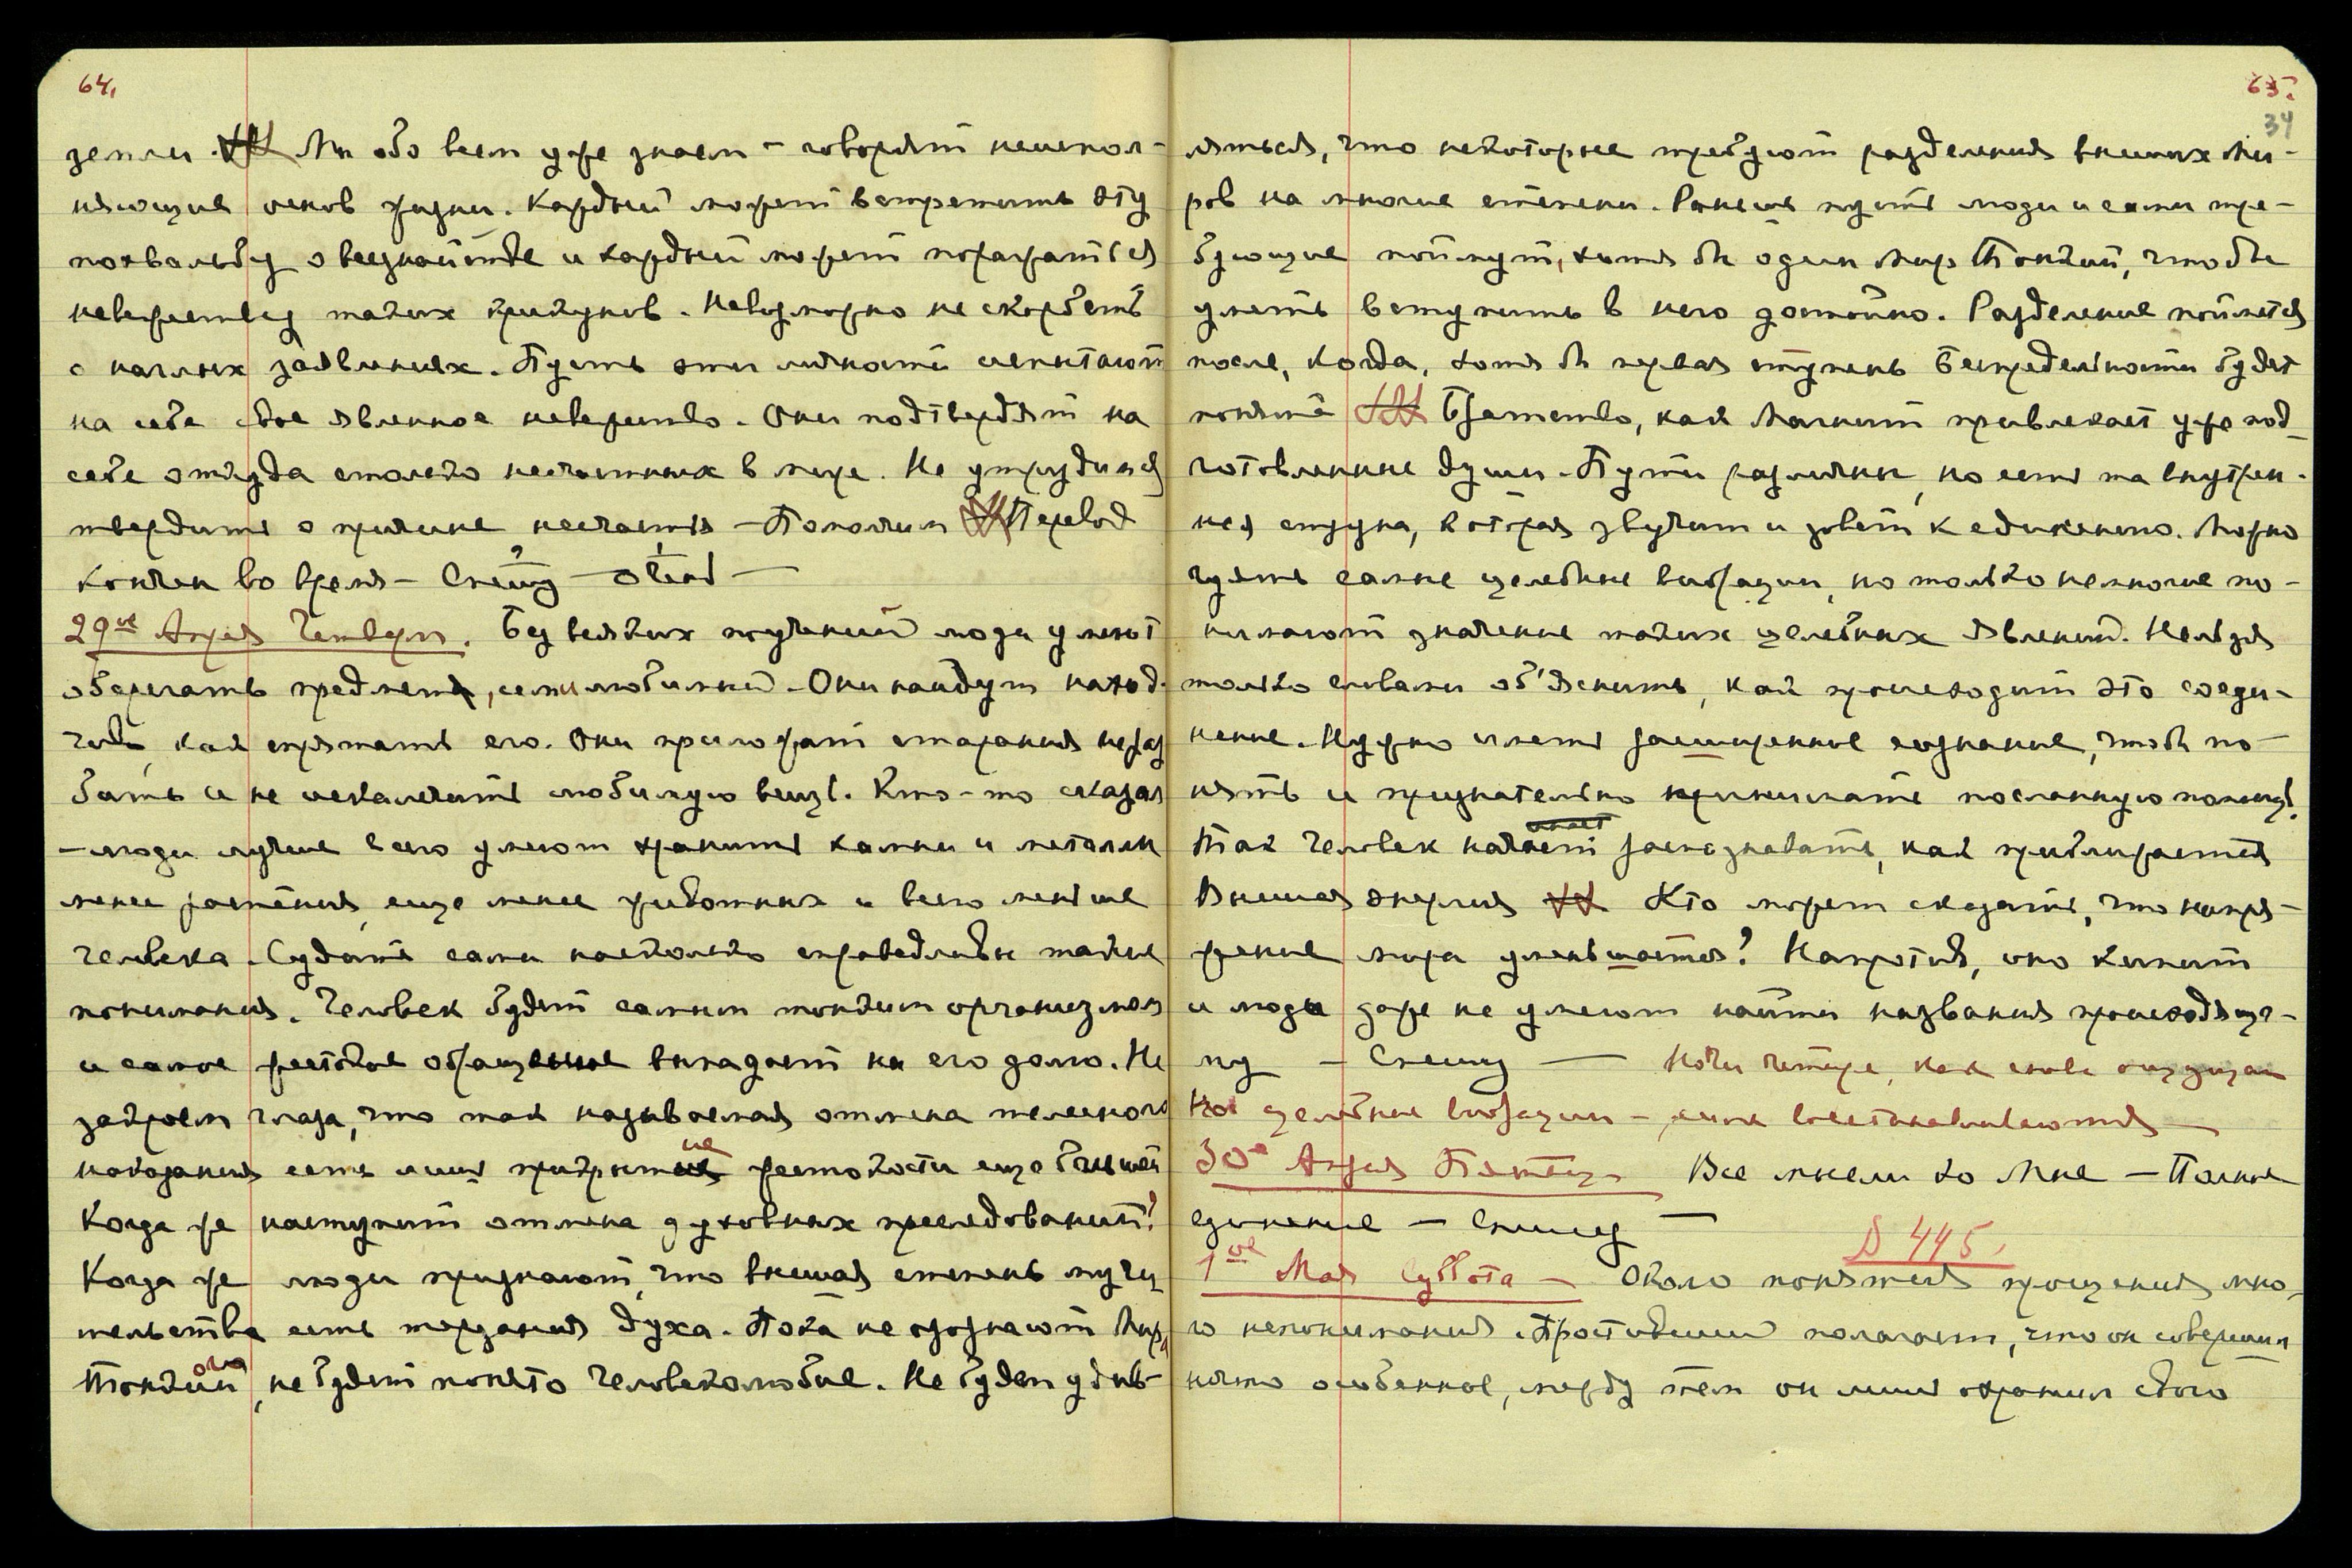 64.
земли. Мы обо всем уже знаем – говорят неиспол-
няющие основ жизни. Каждый может встретить эту
похвальбу о всезнайстве и каждый может поражаться
невежеству таких кликунов. Невозможно не скорбеть
о наглых заявлениях. Пусть эти личности испытают
на себе свое явленное невежество. Они подтвердят на
себе откуда столько несчастных в мире. Не утрудимся
твердить о причине несчастья – Поможем Перевод
кончен во время – Спешу – очень –
29ое Апреля Четверг. Без всяких поучений люди умеют
оберегать предмет, ими любимый. Они найдут наход-
чиво, как спрятать его. Они приложат старания не раз
бить и не искалечить любимую вещь. Кто-то сказал
– люди лучше всего умеют хранить камни и металлы
менее растения, еще менее животных и всего меньше
человека. Судите сами насколько справедливы такие
понимания. Человек будет самым тонким организмом
и самое жестокое обращение выпадает на его долю. Не
закроем глаза, что так называемая отмена телесного
наказания есть лишь прикрытие жестокости еще большей
Когда же наступит отмена духовных преследований?
Когда же люди признают, что высшая степень мучи-
тельства есть терзания духа. Пока не познают Мира
Тонкого, не будет понято человеколюбие. Не будем удив-
65.
34
ляться, что некоторые требуют разделения высших Ми-
ров на многие степени. Раньше пусть люди и сами тре-
бующие поймут, хотя бы один Мир Тонкий, чтобы
уметь вступить в него достойно. Разделение поймется
после, когда, хотя бы первая ступень Беспредельности будет
понята Братство, как Магнит привлекает уже под-
готовленные души. Пути различны, но есть та внутрен-
няя струна, которая звучит и зовет к единению. Можно
чуять самые целебные вибрации, но только немногие по-
нимают значение таких целебных явлений. Нельзя
только словами об'яснить, как происходит это соеди-
нение. Нужно иметь расширенное сознание, чтобы по-
нять и признательно принимать посланную помощь.
Так человек начнет распознавать, как приближается
Высшая энергия Кто может сказать, что напря-
жение мира уменьшается? Напротив, оно кипит
и люди даже не умеют найти названия происходяще-
му – Спешу – Ночи четыре, как снова ощущаю
целебные вибрации – силы восстанавливаются –
30ое Апреля Пятница Все мысли ко Мне – Полное
единение – Спешу –
§ 445.
1ое Мая Суббота – Около понятия прощения мно-
го непонимания. Простивший полагает, что он совершил
нечто особенное, между тем он лишь охранил свою